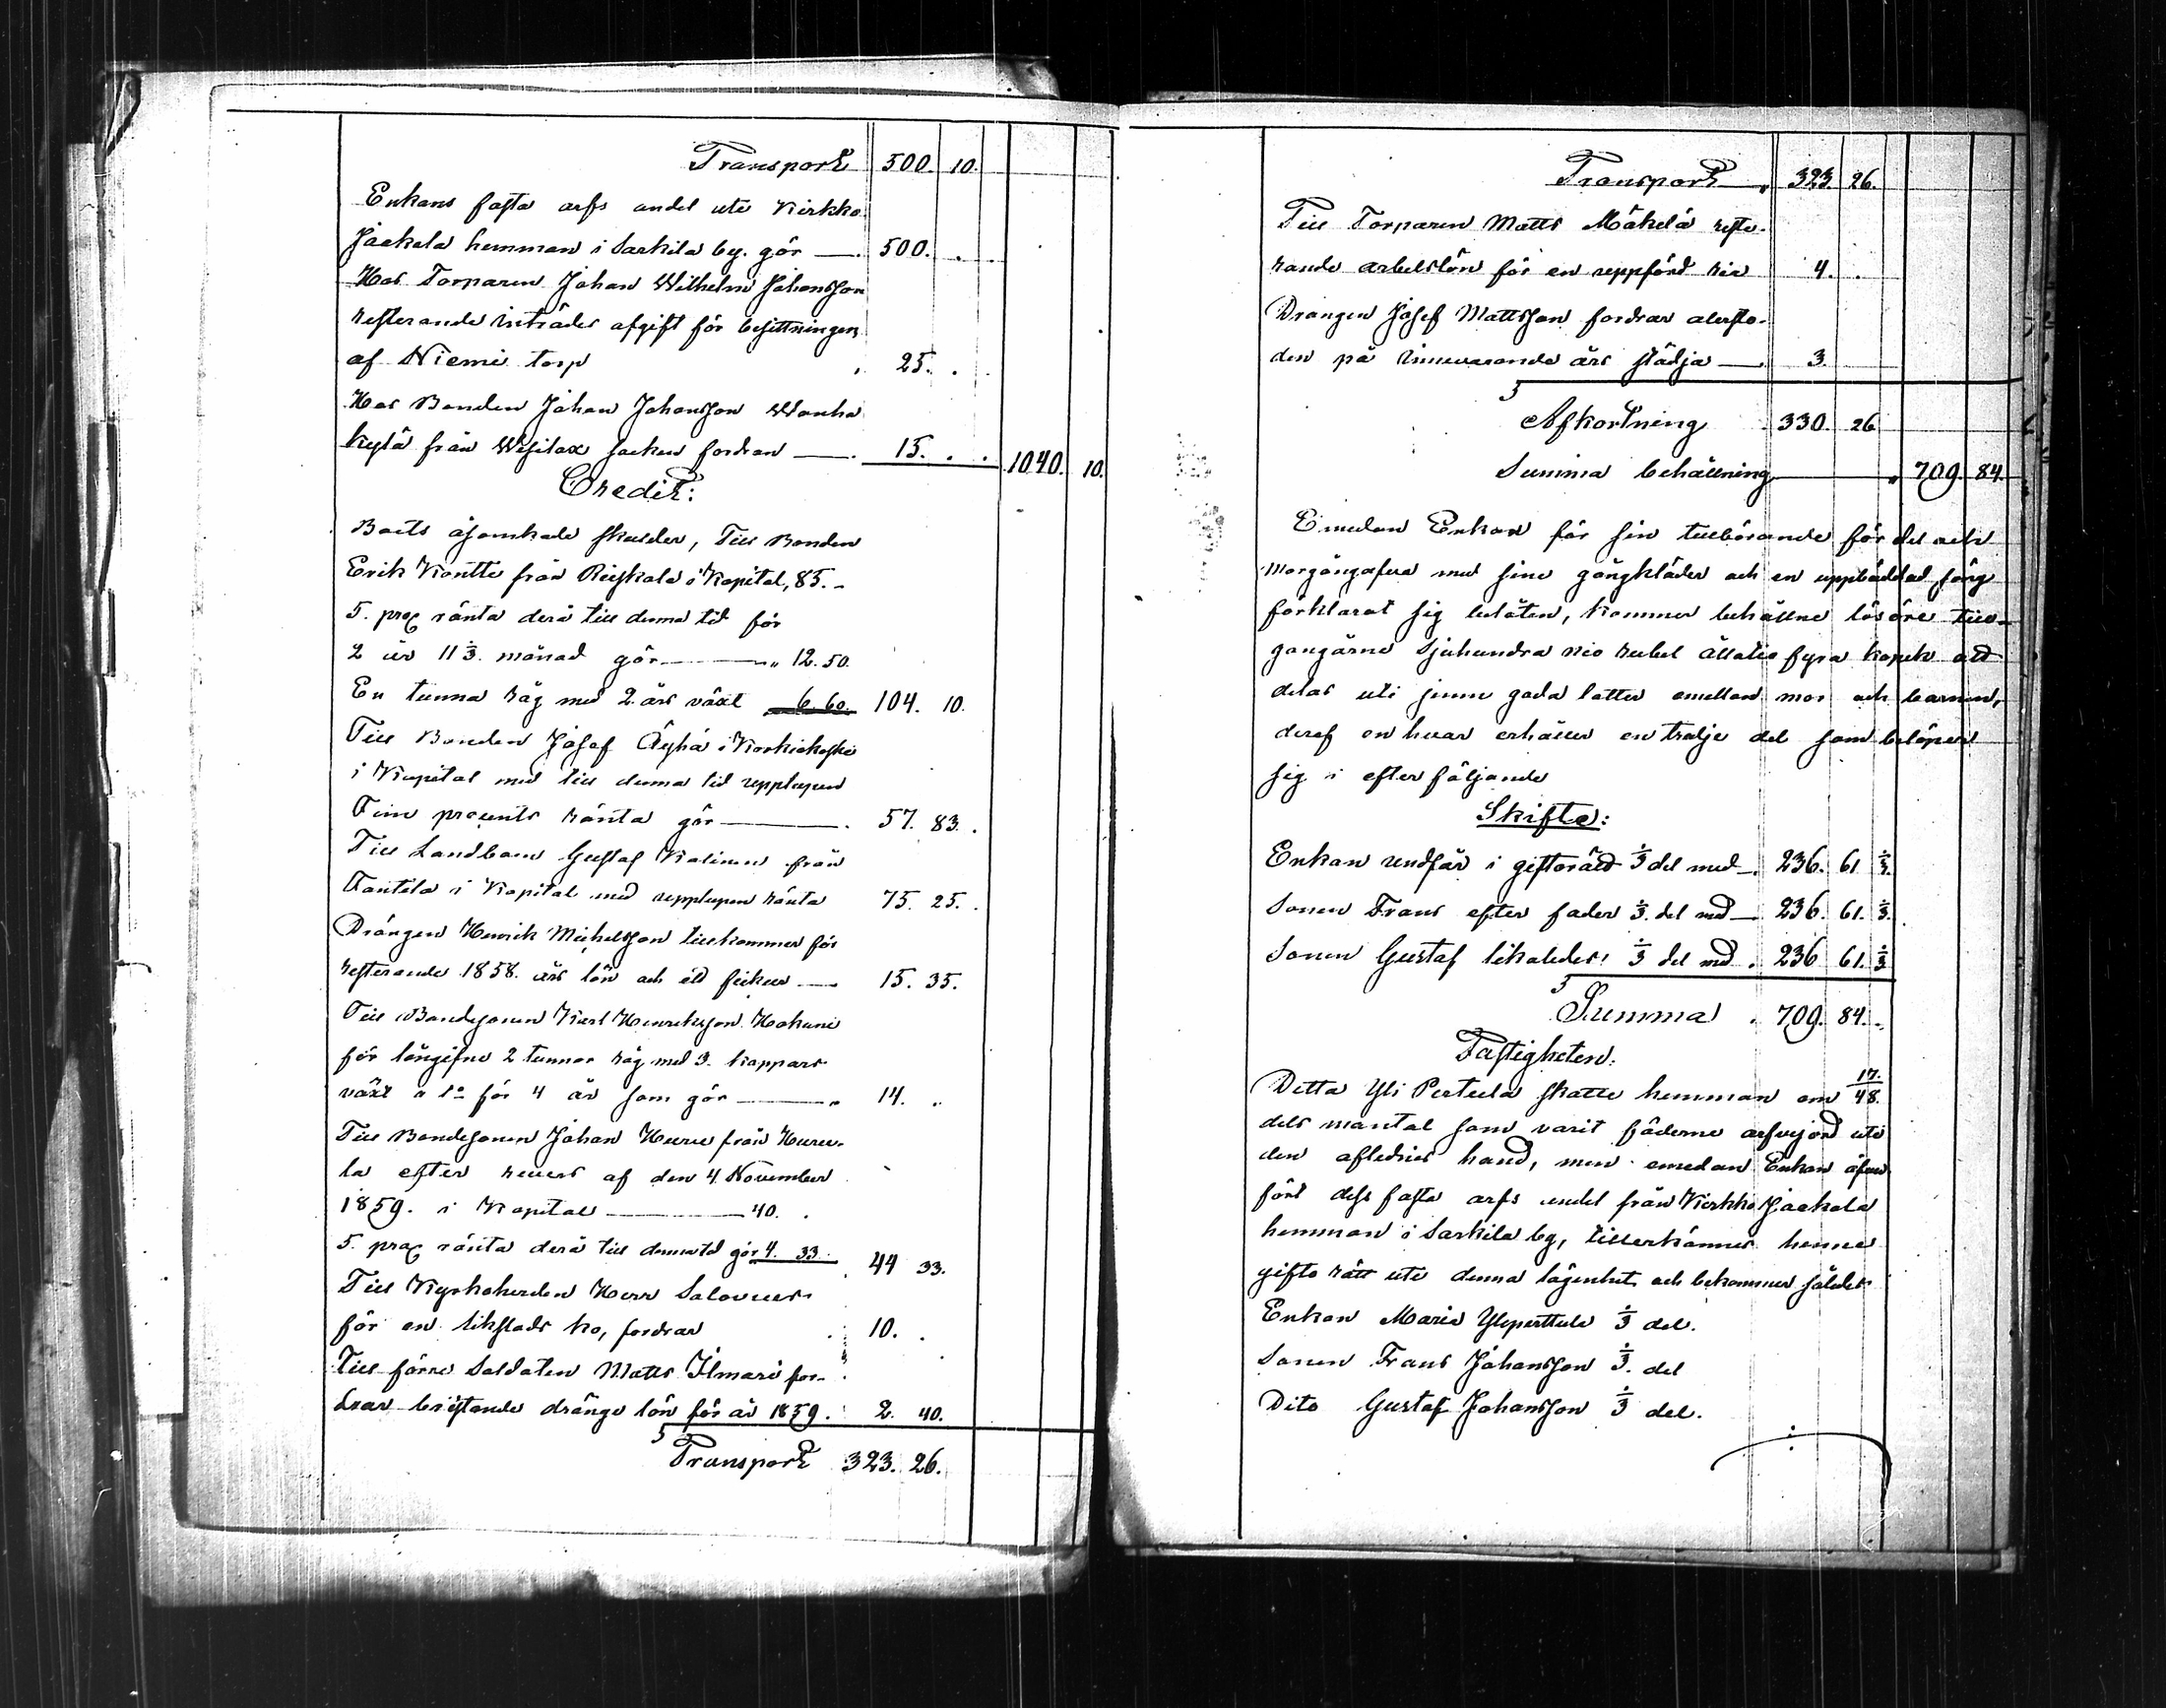 Transport 500. 10.
Enkans fasta arfs andel uti Kirkko
Jaakola hemman i Sarkila by. gör — 500. .
Hos Torparen Johan Wilhelm Johansson
resterande inträdes afgift för besittningen
af Niemi torp 25. .
Hos Bonden Johan Johansson Wanha
kylä från Wesilax socken fordran — 15. . . 1040. 10.
Credit:
Boets åsamkade skulder, Till Bonden
Erik Kontti från i Kapital, 85. -
5. proc ränta derå till denna tid för
2 år 11 2/3. månad gör — " 12. 50.
En tunna råg med 2. års växt 6. 60. 104. 10.
Till Bonden Josef Äyhä i
i Kapital med till denna tid upplupen
Fem procents ränta gör — . 57. 83. .
Till Landbon Gustaf från
i Kapital med upplupen ränta 75. 25. .
Drängen Henrik Michelsson tillkommer för
resterande 1858. års lön och ett — 15. 35.
Till Bondesonen Karl Henriksson
för 2 tunnor råg med 3. kappars
växt a 1o för 4 år som gör — " 14. "
Till Bondesonen Johan från
la efter revers af den 4. November
1859. i Kapital — 40. .
5. proc ränta derå till denna tid gör 4. 33. 44 33.
Till Kyrkoherden Herr Salovius
för en likstods ko, fordrar . 10. .
Till förre Soldaten Matts Ilmari for-
drar bristande dränge lön för år 1859. 2. 40.
Transport 323. 26.
Transport " 323. 26.
Till Torparen Matts Mäkelä reste-
rande arbetslön för en uppförd ria 4. .
Drängen Josef Mattsson fordrar atersto-
den på innevarande års städja — 3.
Afkortning . 330. 26
Summa behållning — " 709. 84.
Emedan Enkan för sin tillbörande för del och
morgongåfva med sine gångkläder och en uppbäddad säng
förklarat sig belåten, kommer behållne lösöre till-
gångarne Sjuhundra nio rubel åttatio fyra kopek att
delas uti jemn goda lotter emellan mor och barnen,
deraf en hvar erhåller en tredje del som belöper
sig i efter följande
Skifte:
Enkan undfår i giftorätt 1/3 del med — 236. 61 1/3.
Sonen Frans efter fader 1/3. del med — 236. 61. 1/3.
Sonen Gustaf likaledes 1/3 del med . 236 61. 1/3
Summa . 709. 84. .
Fastigheten:
Detta Yli Perttula skatte hemman om 17./48.
dels mantal som varit fäderne arfvejord uti
den aflednes hand, men emedan Enkan äfven
fört dess fasta arfs andel från Kirkko Jaakola
hemman i Sarkila by, tillerkännes henne
gifto rätt uti denna lägenhet och bekommer således
Enkan Maria Yliperttula 1/3 del.
Sonen Frans Johansson 1/3. del
Dito Gustaf Johansson 1/3 del.